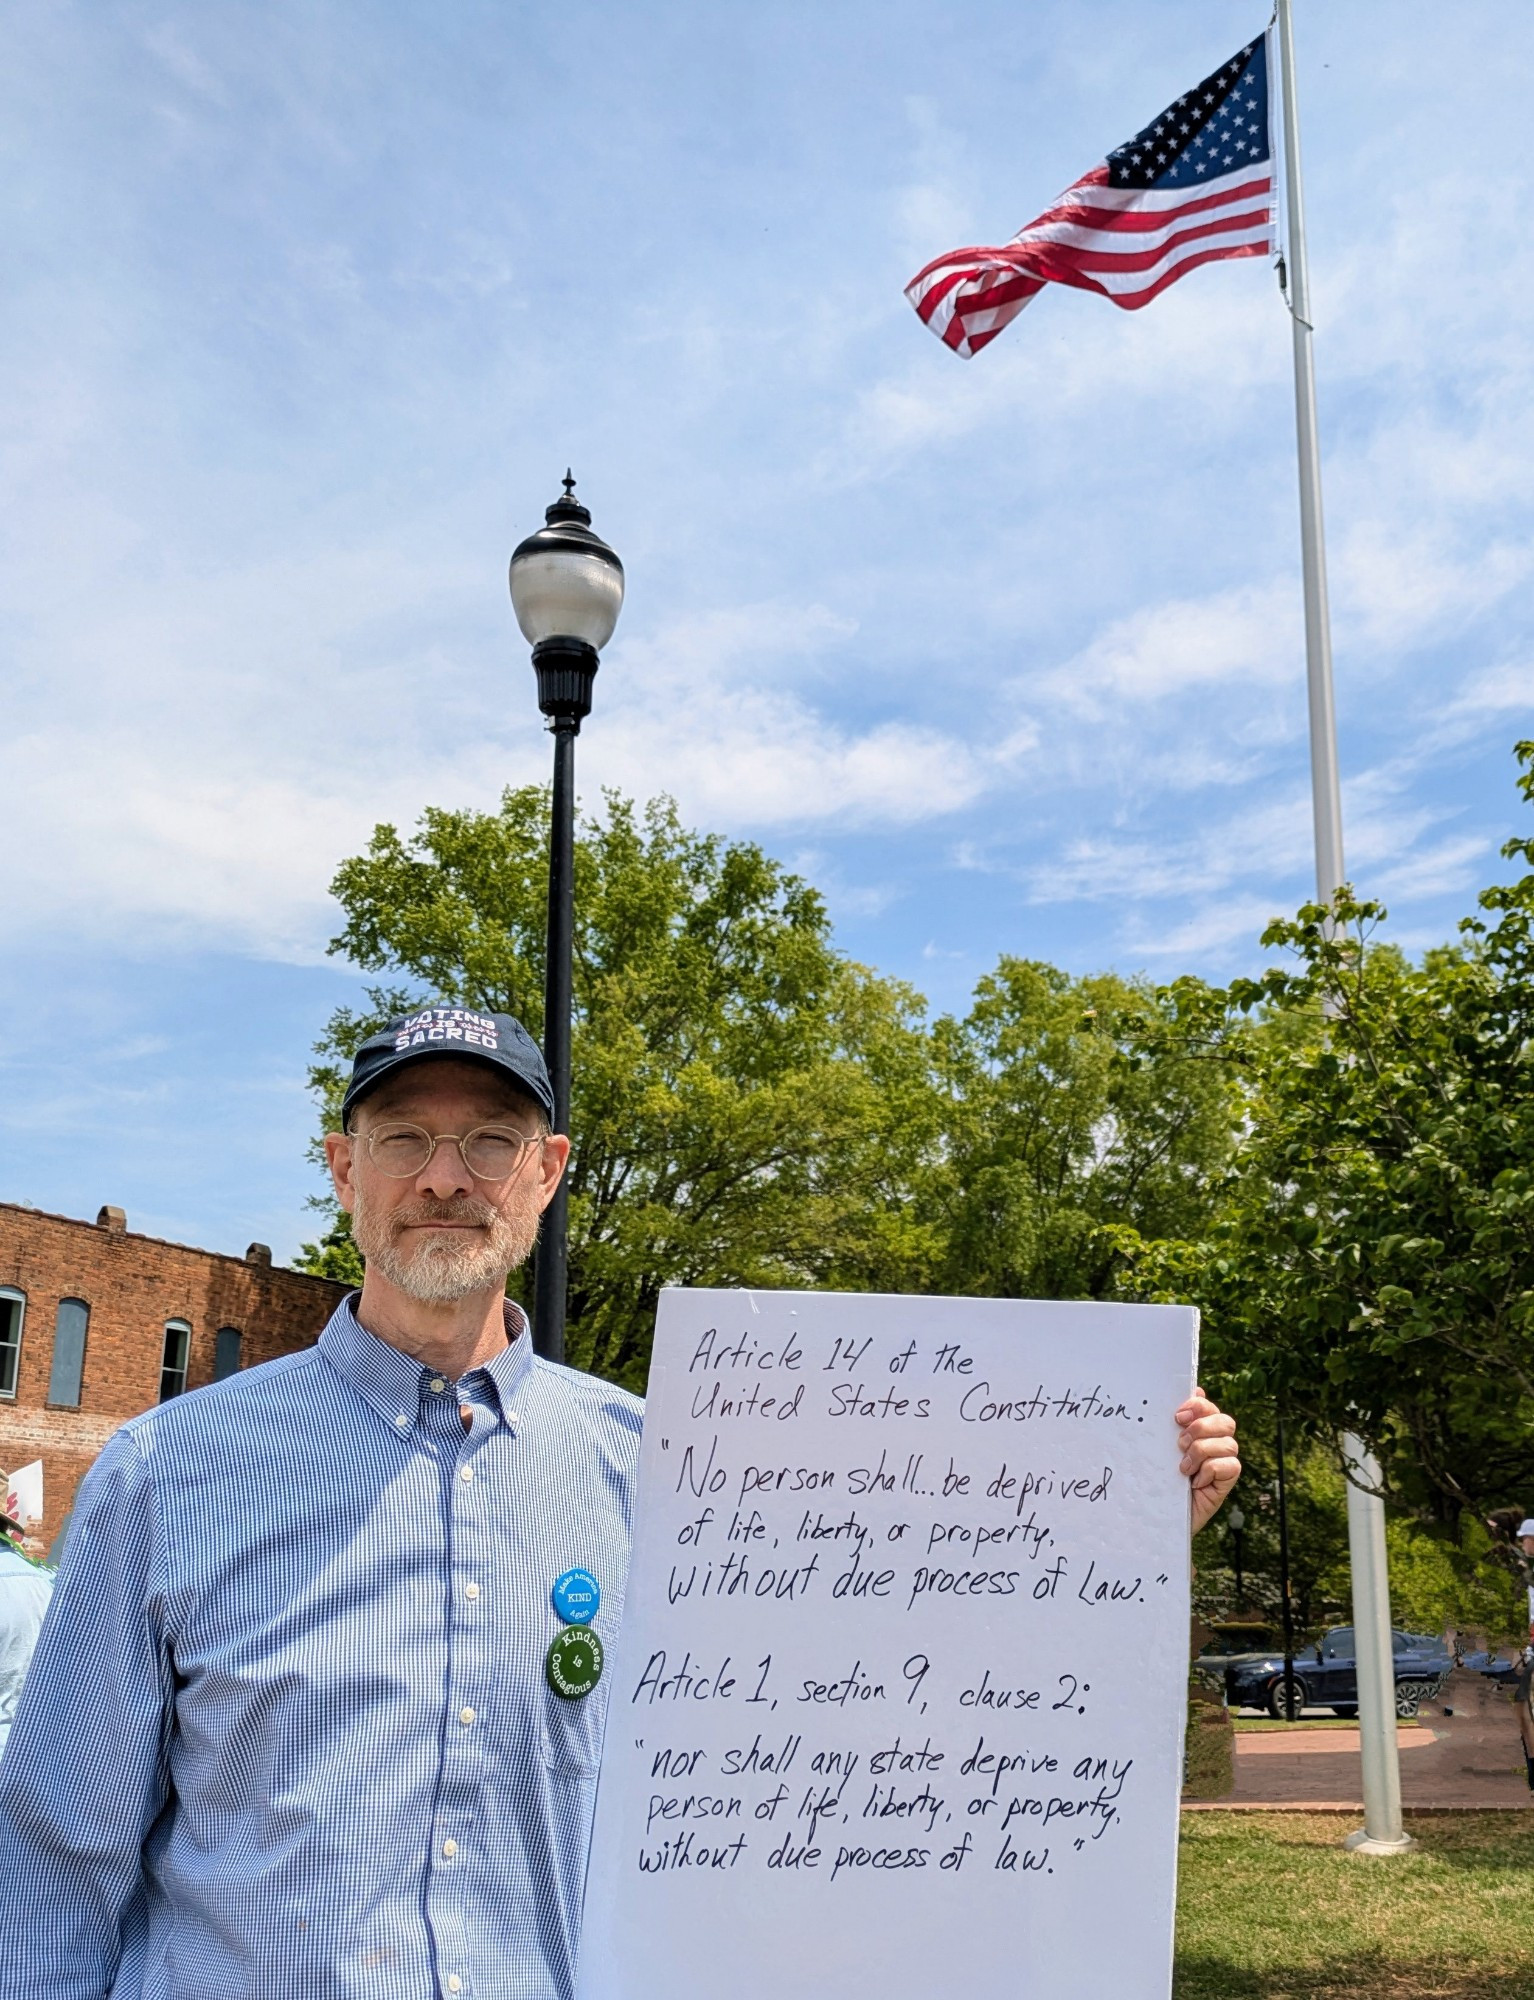 VOTING
IS
SACRED
Make America
KIND
Again
Kindness
is
Contagious
Article 14 of the
United States Constitution:
"No person shall... be deprived
of life, liberty, or property,
without due process of Law."
Article 1, section 9, clause 2:
"nor shall any state deprive any
person of life, liberty, or property,
without due process of law."